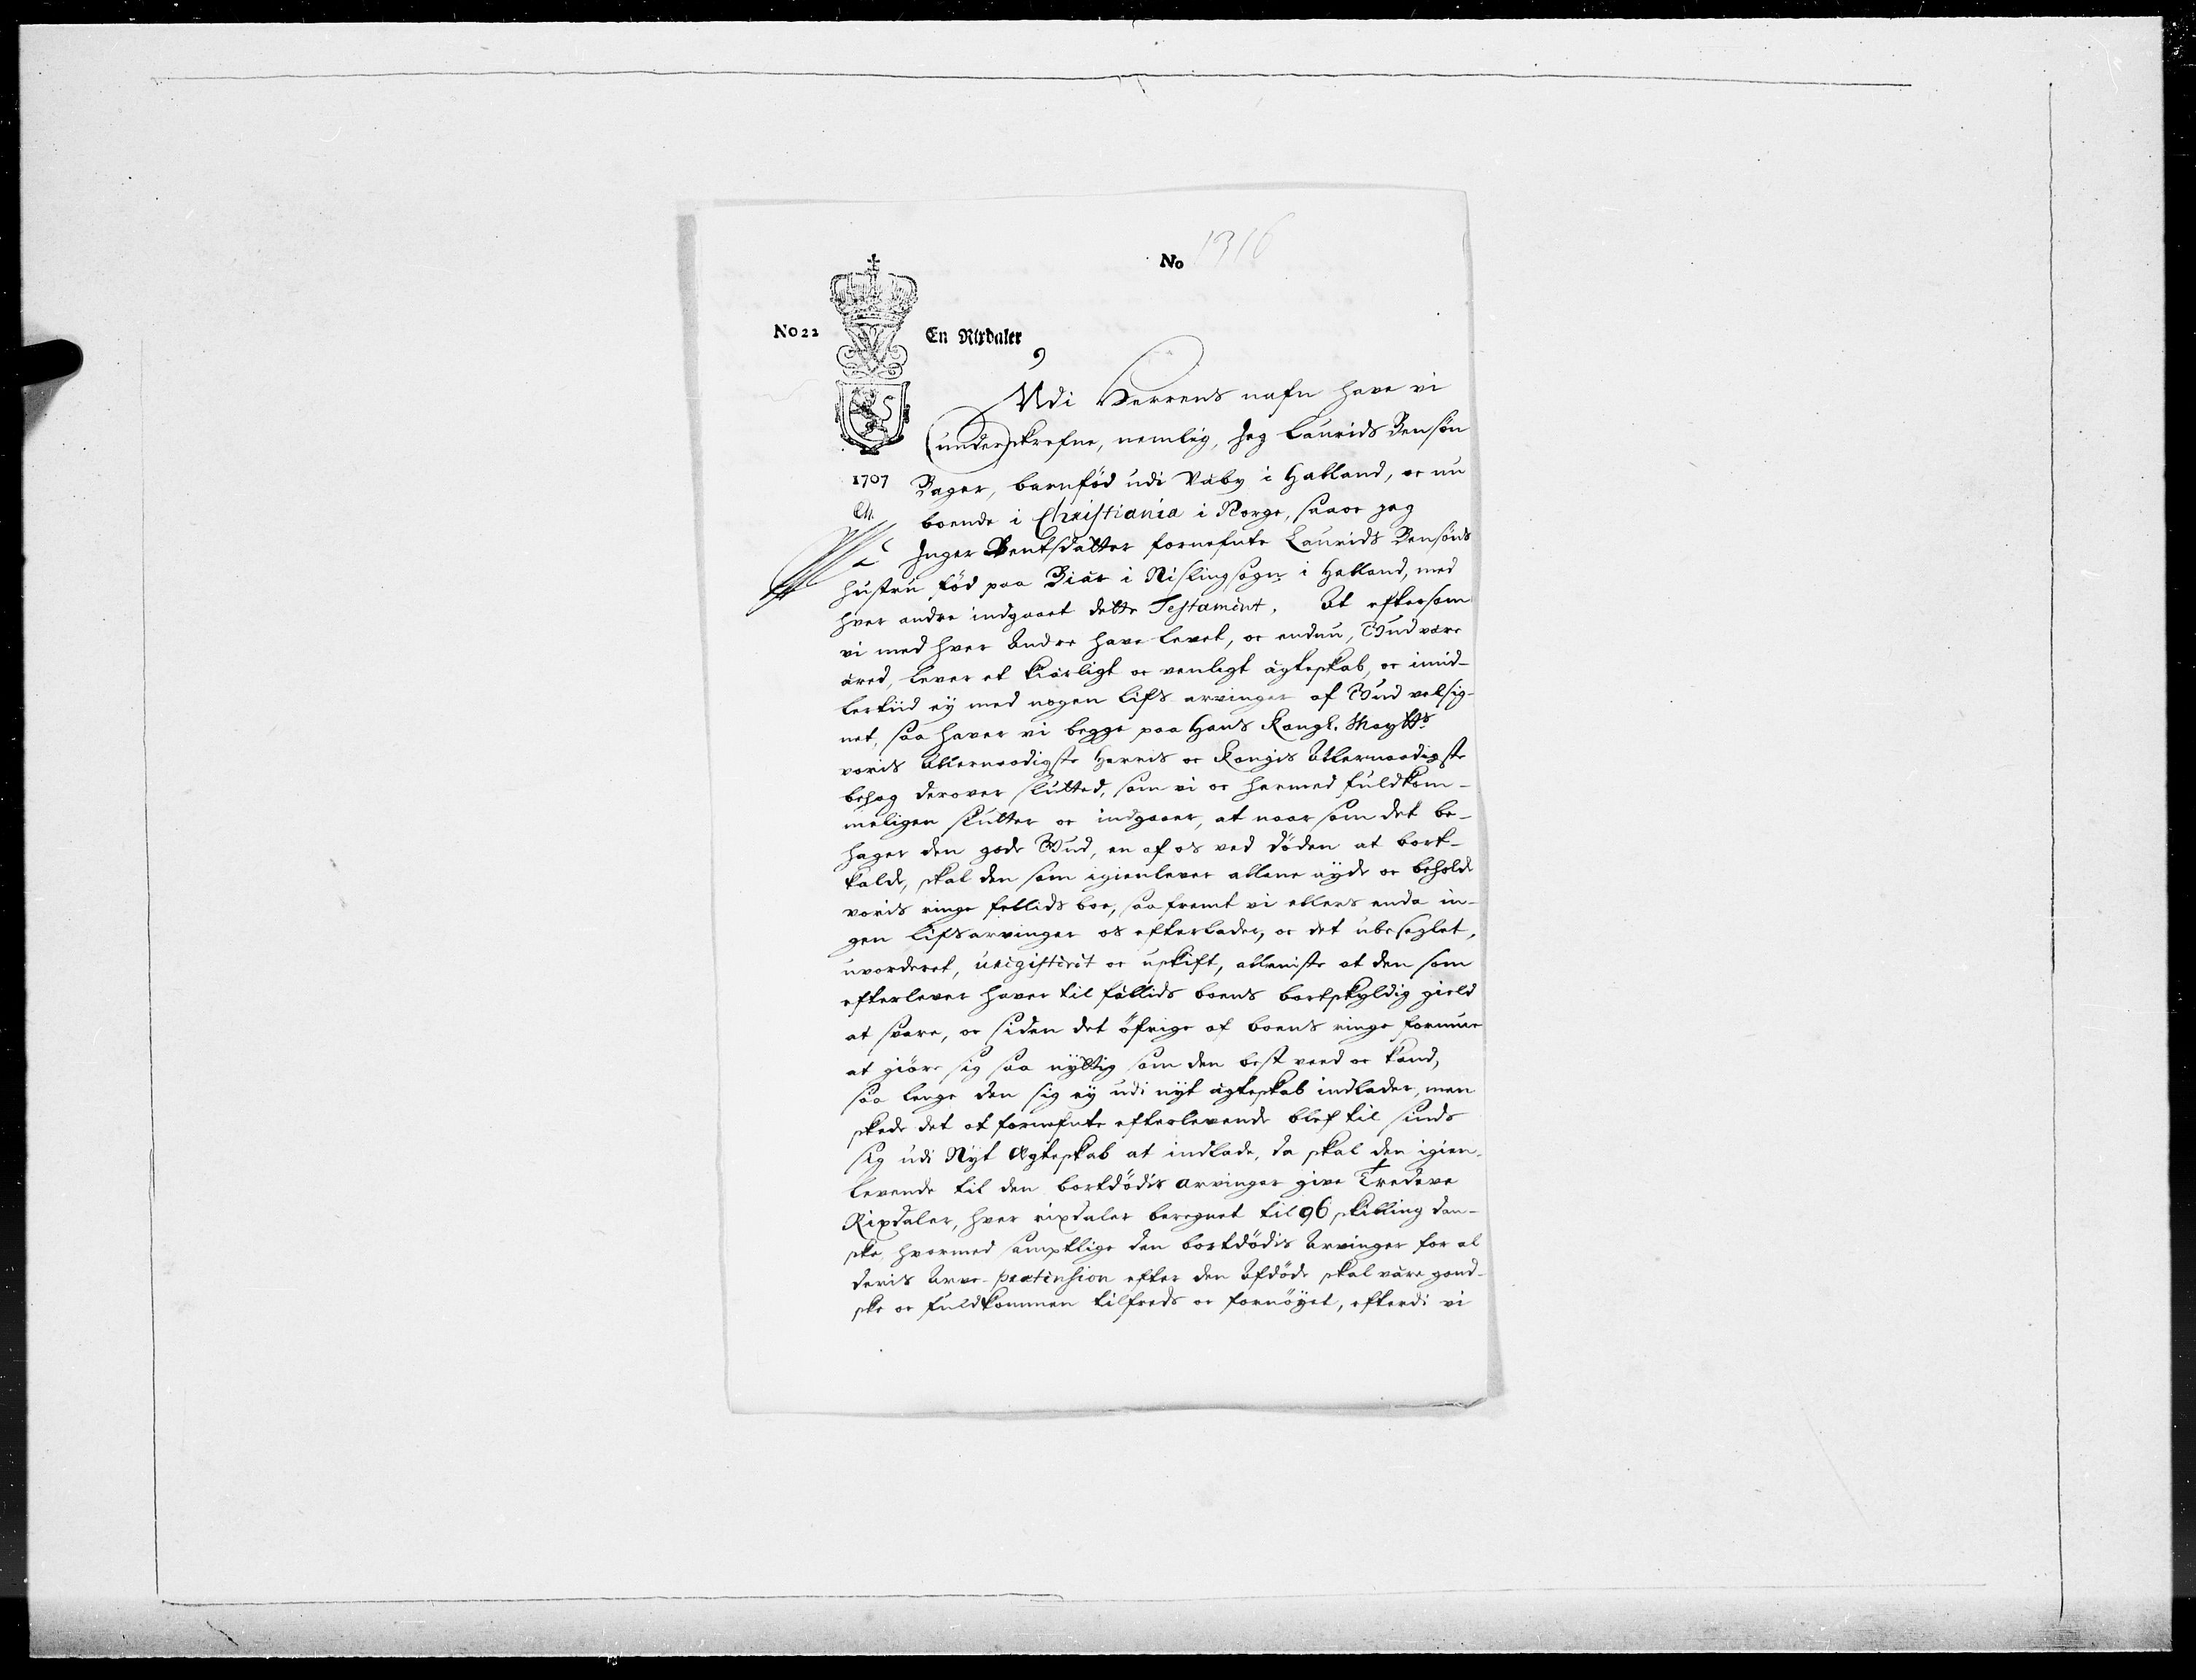 No 1316
No 22
En Rixdaler
Udi Herrens nafn have vi
underskrefne, nemlig, Jeg Laurids Bensøn
1707
Bager, barnfød udi Vaby i Halland, oc nu
boende i Christiania i Norge, saa oc jeg
Inger Bentsdatter fornefnte Laurids Bensøns
hustru fød paa Biär i Nislingsogn i Halland, med
hver andre indgaaet dette Testament. At eftersom
vi med hver Andre have levet, oc endnu, Gud være
äred, lever et kiärligt oc venligt ägteskab, oc imid-
lertiid ey med nogen lifs arvinger af Gud velsig-
net, saa haver vi begge paa Hans Kongl. Maytts
voris Allernaadigste Herris oc Kongis Allernaadigste
behag derover slutted, som vi oc hermed fuldkom-
meligen slutter oc indgaaer, at naar som det be-
hager den gode Gud, en af os ved døden at bort-
kalde, skal den som igienlever allene äyde oc beholde
voris ringe fellids boe, saa fremt vi ellers enda in-
gen lifsarvinger os efterlader, oc det ubeseglet,
uvorderet, uregisterit oc uskift, alleniste at den som
efterlever haver til fällids boens bortskyldig gield
at svare, oc siden det öfrige af boens ringe formue
at giöre sig saa nyttig som den best veed oc kand,
saa lenge den sig ey udi nyt ägteskab indlader, men
skede det at fornefnte efterlevende blef til sinds
sig udi Nyt Ægteskab at indlade, da skal den igien-
levende til den bortdödis arvinger give Tredeve
Rixdaler, hver rixdaler beregnet til 96 skilling dan-
ske, hvormed samptlige den bortdödis Arvinger for al
deris Arve-prætension efter den Afdöde skal väre gand-
ske oc fuldkommen tilfreds oc fornöyet, efterdi vi